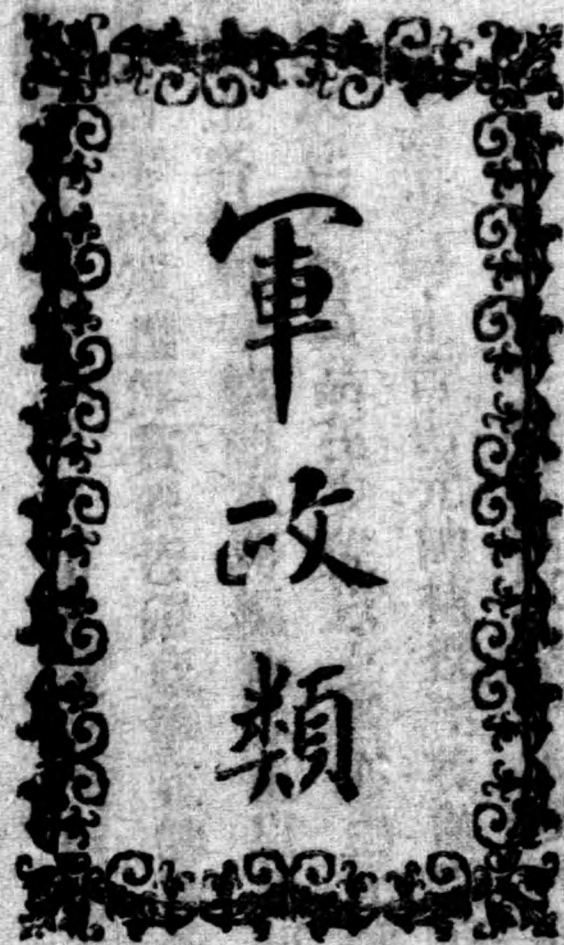 軍政類